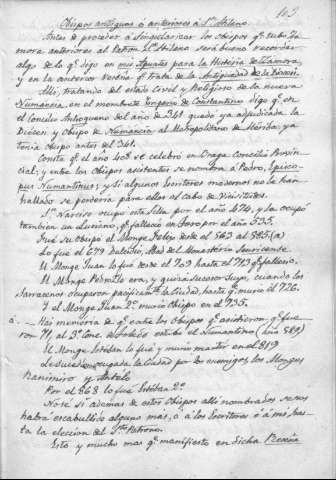 103
Obispos antiguos ó anteriores á Sn. Atilano.
Antes de proceder á singularizar los Obispos qe. tubo Za-
mora anteriores al Patron Sn. Atilano será bueno recordar
algo de lo qe. digo en mis Apuntes para la Historia de Zamora,
y en la anterior qe. trata de la Antiguedad de la
Alli, tratando del estado Civil y Religioso de la nueva
Numancia, en el mombrete Imperio de Constantino digo qe. en
el Concilio del año de 341 quedó ya adjudicada la
Diocesi y Obispo de Numancia al Metropolitano de Merida: ya
tenia Obispo antes del 341.
Consta qe. el año 403 se celebró en Braga Concilio Provin-
cial; y entre los Obispos asistentes se nombra á Pedro, Episco-
pus Numantinus; y si algunos Escritores modernos no lo han
hallado se perderia para ellos al cabo de vicisitudes.
Sn. Narciso ocupó esta Silla por el año 474, y la ocupó
tambien un Luciano, qe. falleció en Toro por el año 535.
Fué su Obispo el Monge Felix desde el 563 al 585 (a)
Lo fue el 679 Dulcidio, Abad del Monasterio
El Monge Juan lo fué desde el 703 hasta el 713 qe. falleció.
El Monge Pedro lo era, y quizá sucesor suyo, cuando los
Sarracenos ocuparon pacificamte. la Ciudad, hasta qe. murió el 726.
Y el Monge Juan 2º murió Obispo en el 735.
a. - Hai memoria de qe. entre los Obispos qe. asistieron, qe. fue-
ron 71, al 3er. Conc. de Toledo estubo el Numantino (año 589)
El Monge Esteban lo fué y murió martir en el 819
Le sucedieron, ocupada la Ciudad por los enemigos, los Monges
Ranimiro y
Por el 868 lo fué Esteban 2º
No sé si ademas de estos Obispos alli nombrados se nos
habrá escabullido alguno mas, ó á los Escritores ó á mi, has-
ta la eleccion del Sto. Patrono.
Esto y mucho mas qe. manifiesto en dicha Reseña